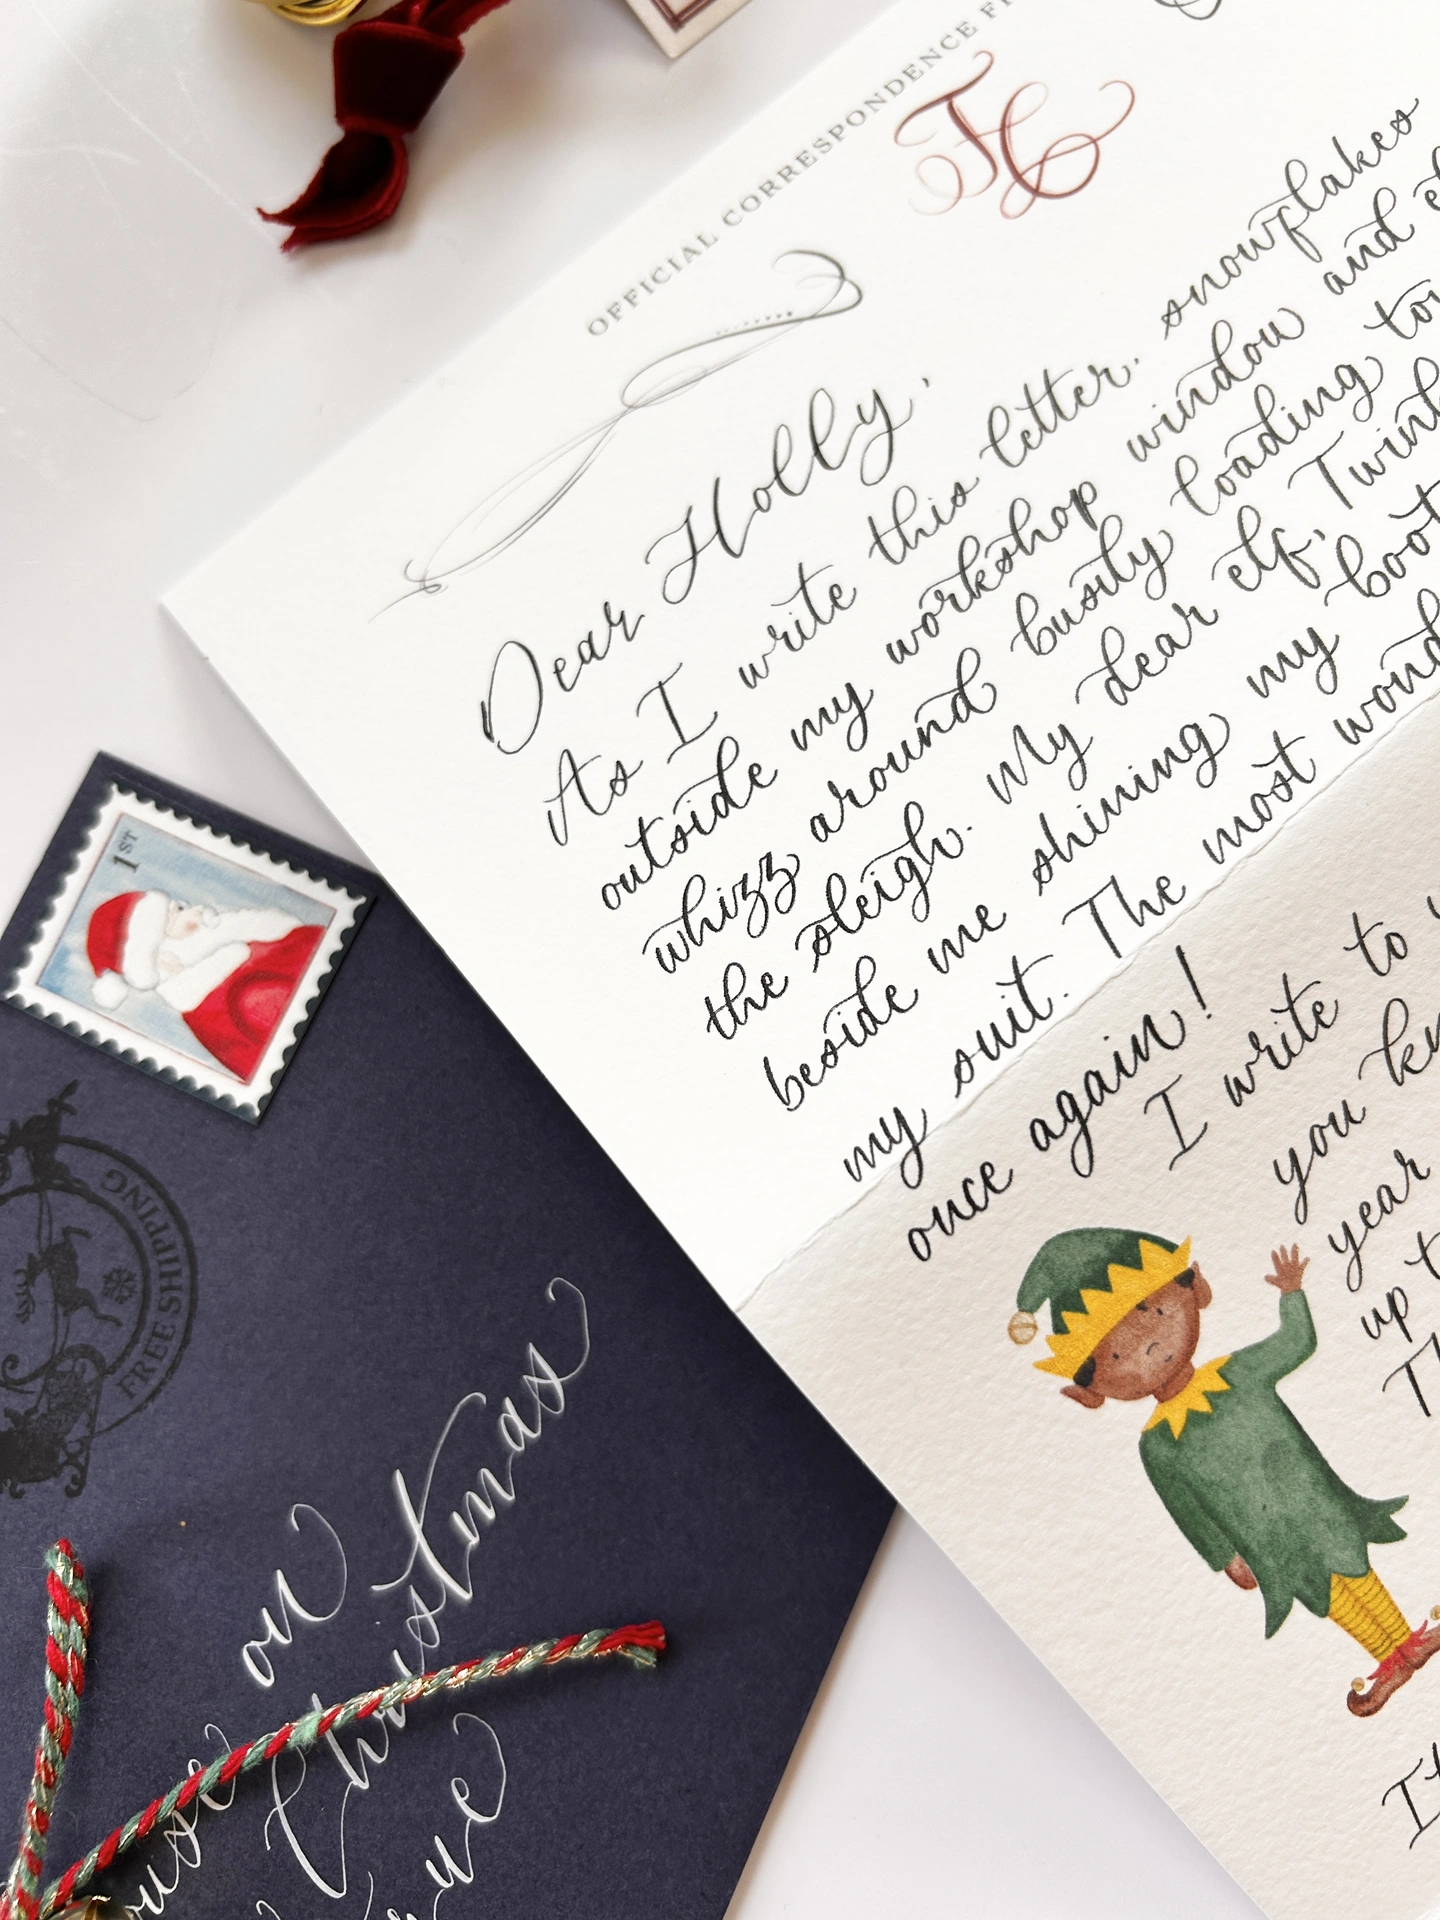 OFFICIAL CORRESPONDENCE
Dear Holly,
As I write this letter, snowflakes
outside my workshop window and
whizz around busily loading
the sleigh. My dear elf,
beside me shining my
my suit. The most
once again!
I write to
you
year
up
1ST
FREE SHIPPING
on
Christmas